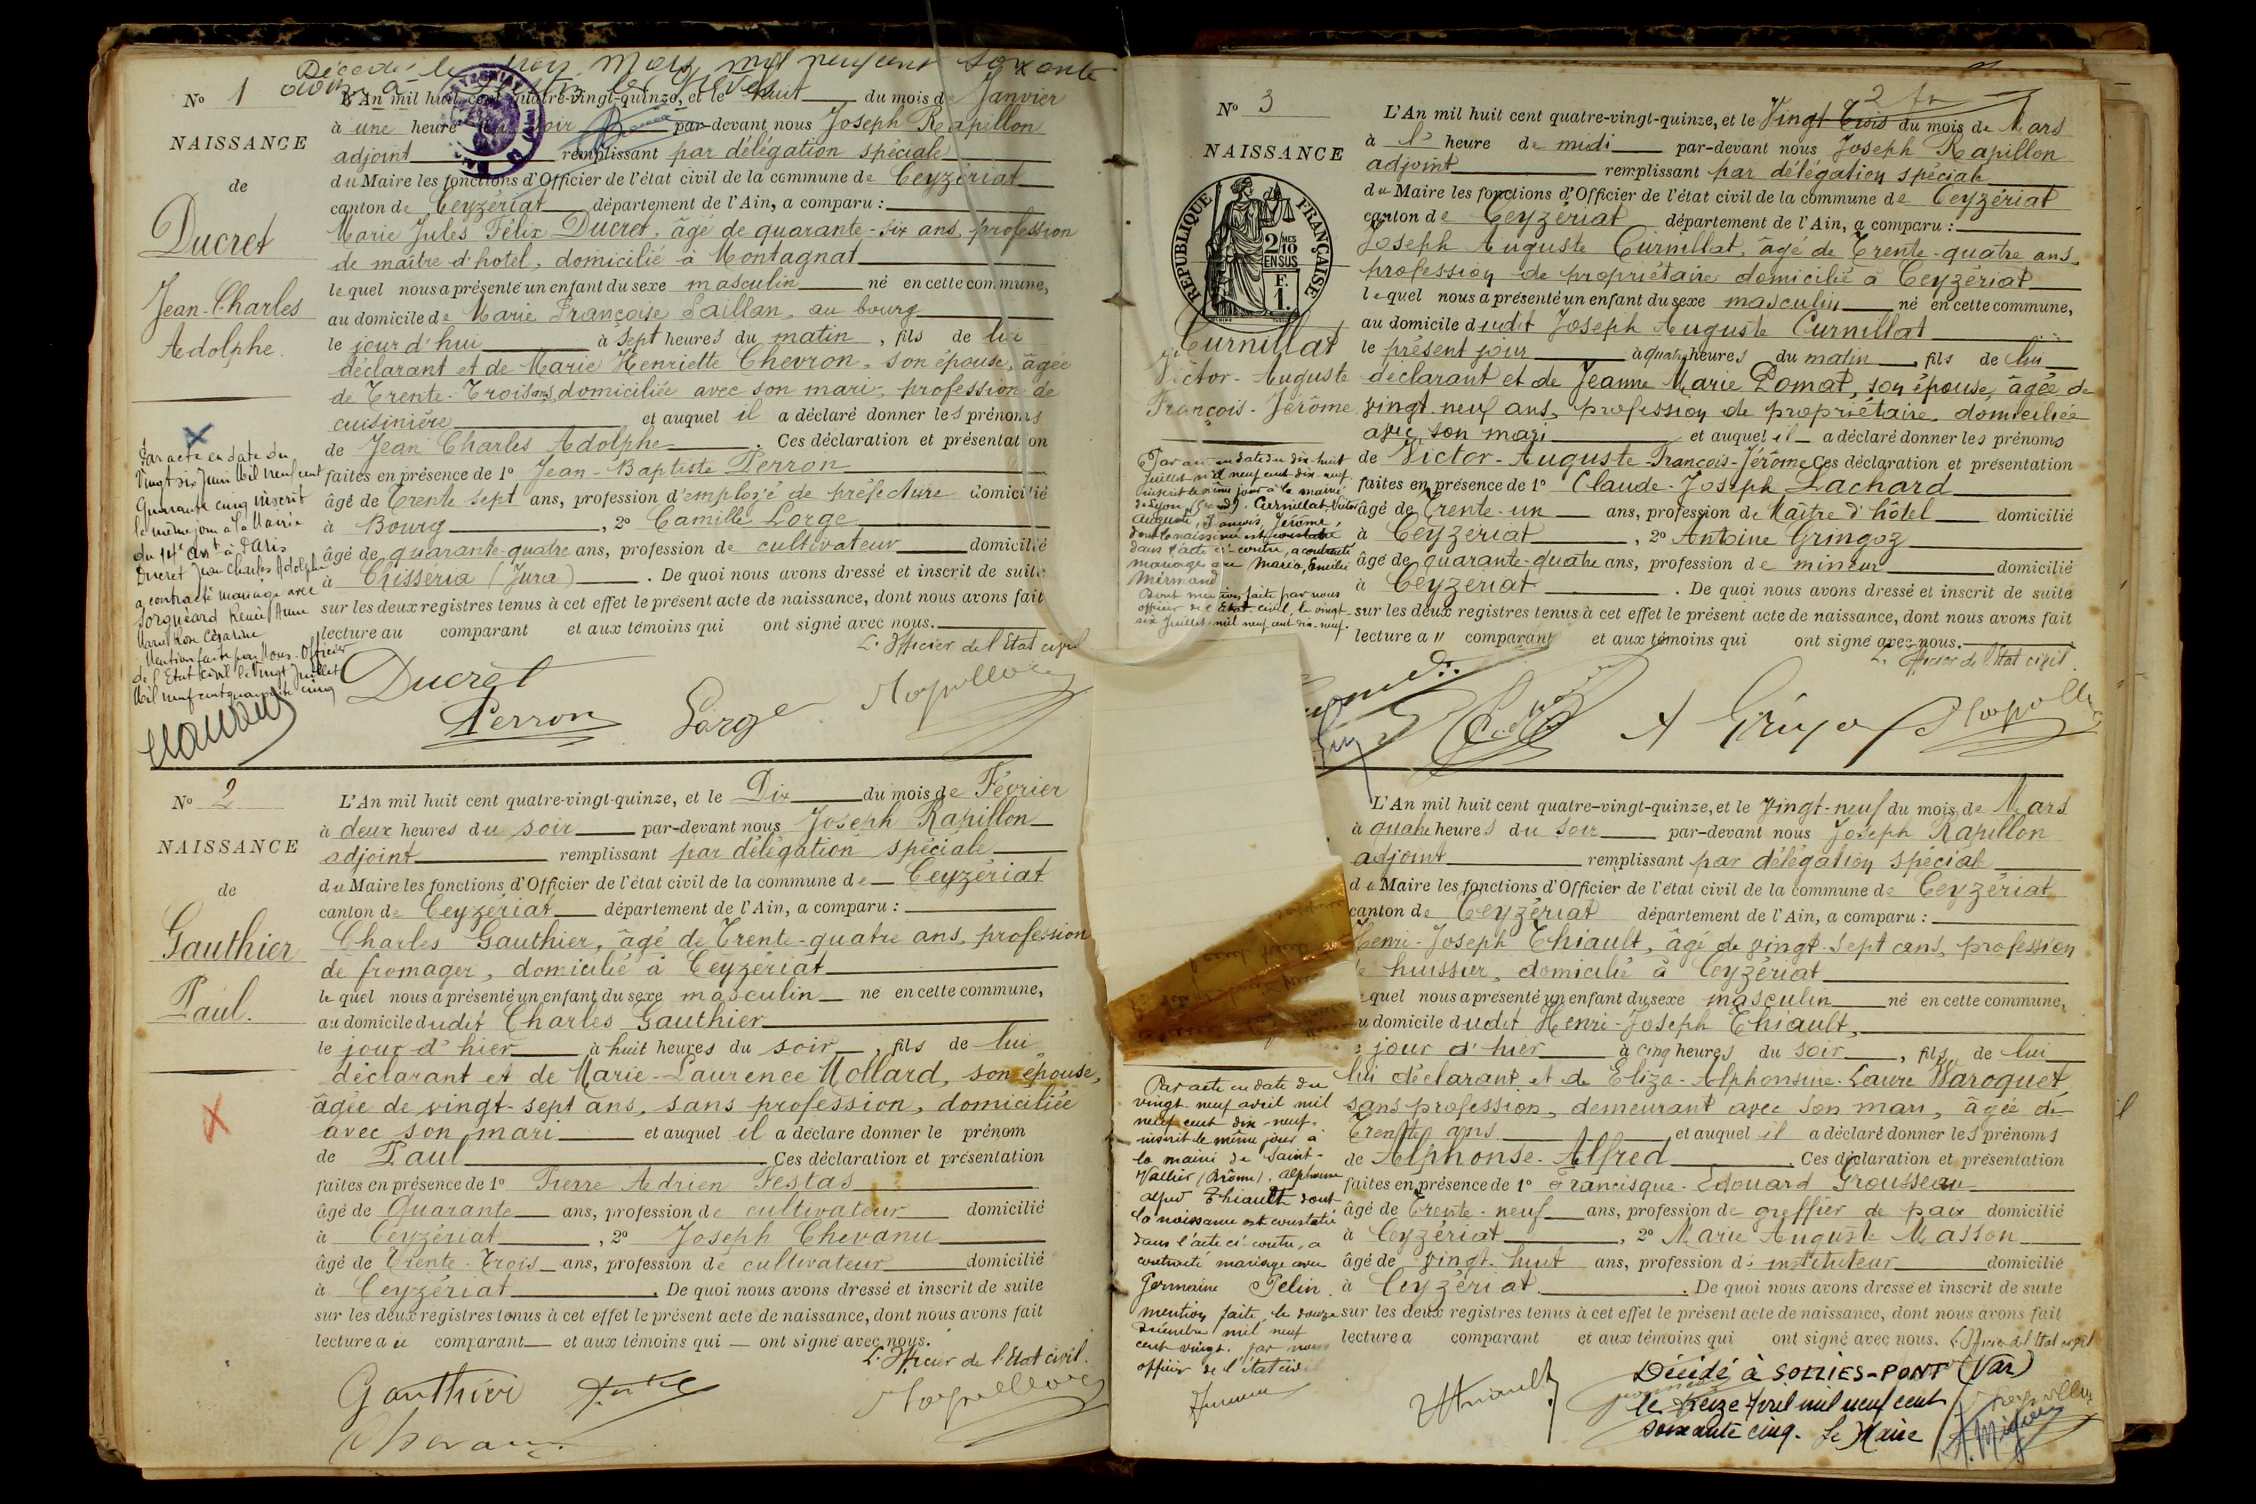 Décédé le mars mil neuf cent soixante
N° 1
NAISSANCE
de
Ducret
Jean-Charles
Adolphe.
L'An mil huit cent quatre-vingt-quinze, et le huit du mois de Janvier
à une heure du soir par-devant nous Joseph Rapillon
adjoint remplissant par délégation spéciale
du Maire les fonctions d'Officier de l'état civil de la commune de Ceyzériat
canton de Ceyzériat département de l'Ain, a comparu :
Marie Jules Félix Ducret, âgé de quarante-six ans, profession
de maître d'hôtel, domicilié à Montagnat
lequel nous a présenté un enfant du sexe masculin né en cette commune,
au domicile de Marie Françoise Paillan, au bourg
le jour d'hui à sept heures du matin, fils de lui
déclarant et de Marie Henriette Chevron, son épouse, âgée
de Trente-Trois ans, domiciliée avec son mari, profession de
cuisinière et auquel il a déclaré donner les prénoms
de Jean Charles Adolphe. Ces déclaration et présentation
faites en présence de 1° Jean-Baptiste Perron
âgé de Trente sept ans, profession d'employé de préfecture domicilié
à Bourg, 2° Camille Lorge
âgé de quarante-quatre ans, profession de cultivateur domicilié
à Chisséria (Jura). De quoi nous avons dressé et inscrit de suite
sur les deux registres tenus à cet effet le présent acte de naissance, dont nous avons fait
lecture au comparant et aux témoins qui ont signé avec nous.
L'Officier de l'Etat civil
Ducret
Perron Lorge Rapillon
Par acte en date du
Vingt six Juin Mil neuf cent
Quarante cinq inscrit
le même jour à la Mairie
du 14e Arrt à Paris
Ducret Jean Charles Adolphe
a contracté mariage avec
Renée Anne
Marie Rose Césarine
Mention faite par Nous. Officier
de l'Etat Civil le Vingt Juillet
Mil neuf cent quarante cinq
N° 2
NAISSANCE
de
Gauthier
Paul.
L'An mil huit cent quatre-vingt-quinze, et le Dix du mois de Février
à deux heures du soir par-devant nous Joseph Rapillon
adjoint remplissant par délégation spéciale
du Maire les fonctions d'Officier de l'état civil de la commune de Ceyzériat
canton de Ceyzériat département de l'Ain, a comparu :
Charles Gauthier, âgé de Trente-quatre ans, profession
de fromager, domicilié à Ceyzériat
lequel nous a présenté un enfant du sexe masculin né en cette commune,
au domicile dudit Charles Gauthier
le jour d'hier à huit heures du soir, fils de lui
déclarant et de Marie-Laurence Mollard, son épouse,
âgée de vingt-sept ans, sans profession, domiciliée
avec son mari et auquel il a déclaré donner le prénom
de Paul Ces déclaration et présentation
faites en présence de 1° Pierre Adrien Festas
âgé de Quarante ans, profession de cultivateur domicilié
à Ceyzériat, 2° Joseph Chevanu
âgé de Trente-Trois ans, profession de cultivateur domicilié
à Ceyzériat. De quoi nous avons dressé et inscrit de suite
sur les deux registres tenus à cet effet le présent acte de naissance, dont nous avons fait
lecture au comparant et aux témoins qui ont signé avec nous.
L'Officier de l'Etat civil.
Gauthier Rapillon
N° 3
NAISSANCE
RÉPUBLIQUE FRANÇAISE
2/10 EN SUS
F. 1.
Curnillat
Victor-Auguste
François-Jérôme
L'An mil huit cent quatre-vingt-quinze, et le Vingt Trois du mois de Mars
à 1 heure de midi par-devant nous Joseph Rapillon
adjoint remplissant par délégation spéciale
du Maire les fonctions d'Officier de l'état civil de la commune de Ceyzériat
canton de Ceyzériat département de l'Ain, a comparu :
Joseph Auguste Curnillat, âgé de Trente-quatre ans,
profession de propriétaire domicilié à Ceyzériat
lequel nous a présenté un enfant du sexe masculin né en cette commune,
au domicile dudit Joseph Auguste Curnillat
le présent jour à quatre heures du matin, fils de lui
déclarant et de Jeanne Marie Pomat, son épouse, âgée de
vingt-neuf ans, profession de propriétaire, domiciliée
avec son mari et auquel il a déclaré donner les prénoms
de Victor-Auguste-François-Jérôme Ces déclaration et présentation
faites en présence de 1° Claude-Joseph Lachard
âgé de Trente-un ans, profession de Maître d'hôtel domicilié
à Ceyzériat, 2° Antoine Gringoz
âgé de quarante-quatre ans, profession de mineur domicilié
à Ceyzériat. De quoi nous avons dressé et inscrit de suite
sur les deux registres tenus à cet effet le présent acte de naissance, dont nous avons fait
lecture au comparant et aux témoins qui ont signé avec nous.
L'Officier de l'Etat civil.
Rapillon
Par acte en date du dix-huit
Juillet mil neuf cent dix neuf
inscrit le même jour à la mairie
de Lyon Curnillat, Victor
Auguste, François, Jérôme,
dont la naissance est constatée
dans l'acte ci-contre, a contracté
mariage avec Maria, Emelie
Mirmand
Dont mention faite par nous
officier de l'Etat civil, le vingt
six Juillet mil neuf cent dix-neuf.
L'An mil huit cent quatre-vingt-quinze, et le vingt-neuf du mois de Mars
à quatre heures du soir par-devant nous Joseph Rapillon
adjoint remplissant par délégation spéciale
du Maire les fonctions d'Officier de l'état civil de la commune de Ceyzériat
canton de Ceyzériat département de l'Ain, a comparu :
Henri-Joseph Thiault, âgé de vingt-sept ans, profession
huissier, domicilié à Ceyzériat
quel nous a présenté un enfant du sexe masculin né en cette commune,
au domicile dudit Henri-Joseph Thiault,
jour d'hier à cinq heures du soir, fils de lui
lui déclarant et de Eliza-Alphonsine-Laure Waroquet
sans profession, demeurant avec son mari, âgée de
Trente ans et auquel il a déclaré donner les prénoms
de Alphonse-Alfred. Ces déclaration et présentation
faites en présence de 1° Francisque-Edouard Grousseau
âgé de Trente-neuf ans, profession de greffier de paix domicilié
à Ceyzériat, 2° Marie Auguste Masson
âgé de vingt-huit ans, profession d'instituteur domicilié
à Ceyzériat. De quoi nous avons dressé et inscrit de suite
sur les deux registres tenus à cet effet le présent acte de naissance, dont nous avons fait
lecture a comparant et aux témoins qui ont signé avec nous. L'Officier de l'Etat civil
Par acte en date du
vingt-neuf avril mil
neuf cent dix-neuf.
inscrit le même jour à
la mairie de Saint-
Vallier (Drôme). Alphonse
Alfred Thiault dont
la naissance est constatée
dans l'acte ci-contre, a
contracté mariage avec
Germaine Pelin.
mention faite le douze
décembre mil neuf
cent vingt. par nous
officier de l'état civil
Thiault
Décédé à SOLLIES-PONT (Var)
le treize Avril mil neuf cent
soixante cinq. Le Maire